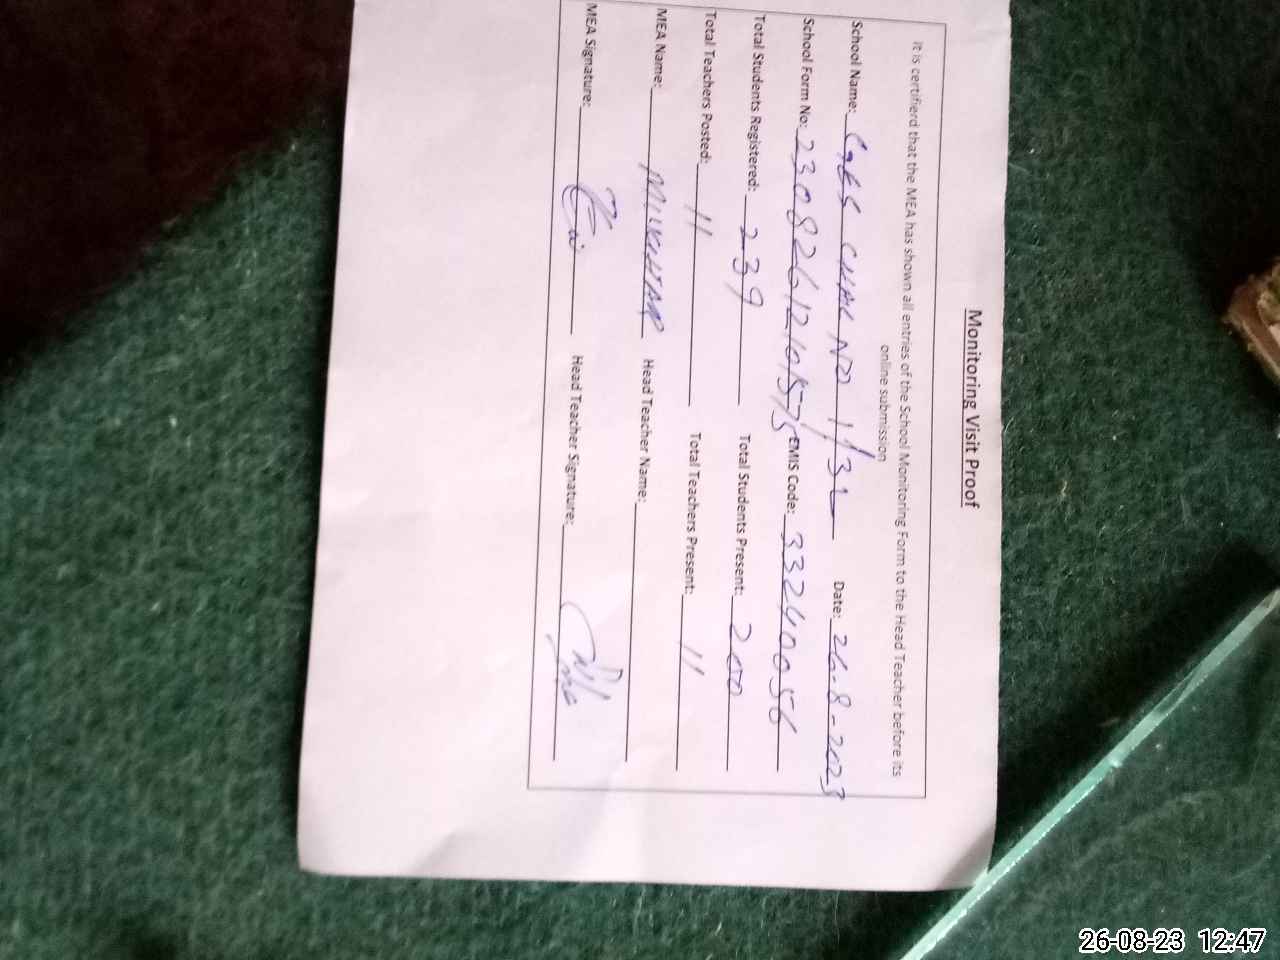 Monitoring Visit Proof
It is certifierd that the MEA has shown all entries of the School Monitoring Form to the Head Teacher before its
online submission
School Name: GGES CHAK NO 1/32 Date: 26-8-2023
School Form No: 23082612101575 EMIS Code: 33240056
Total Students Registered: 239 Total Students Present: 200
Total Teachers Posted: 11 Total Teachers Present: 11
MEA Name: MUKHTAR Head Teacher Name:
MEA Signature: Head Teacher Signature:
26-08-23 12:47